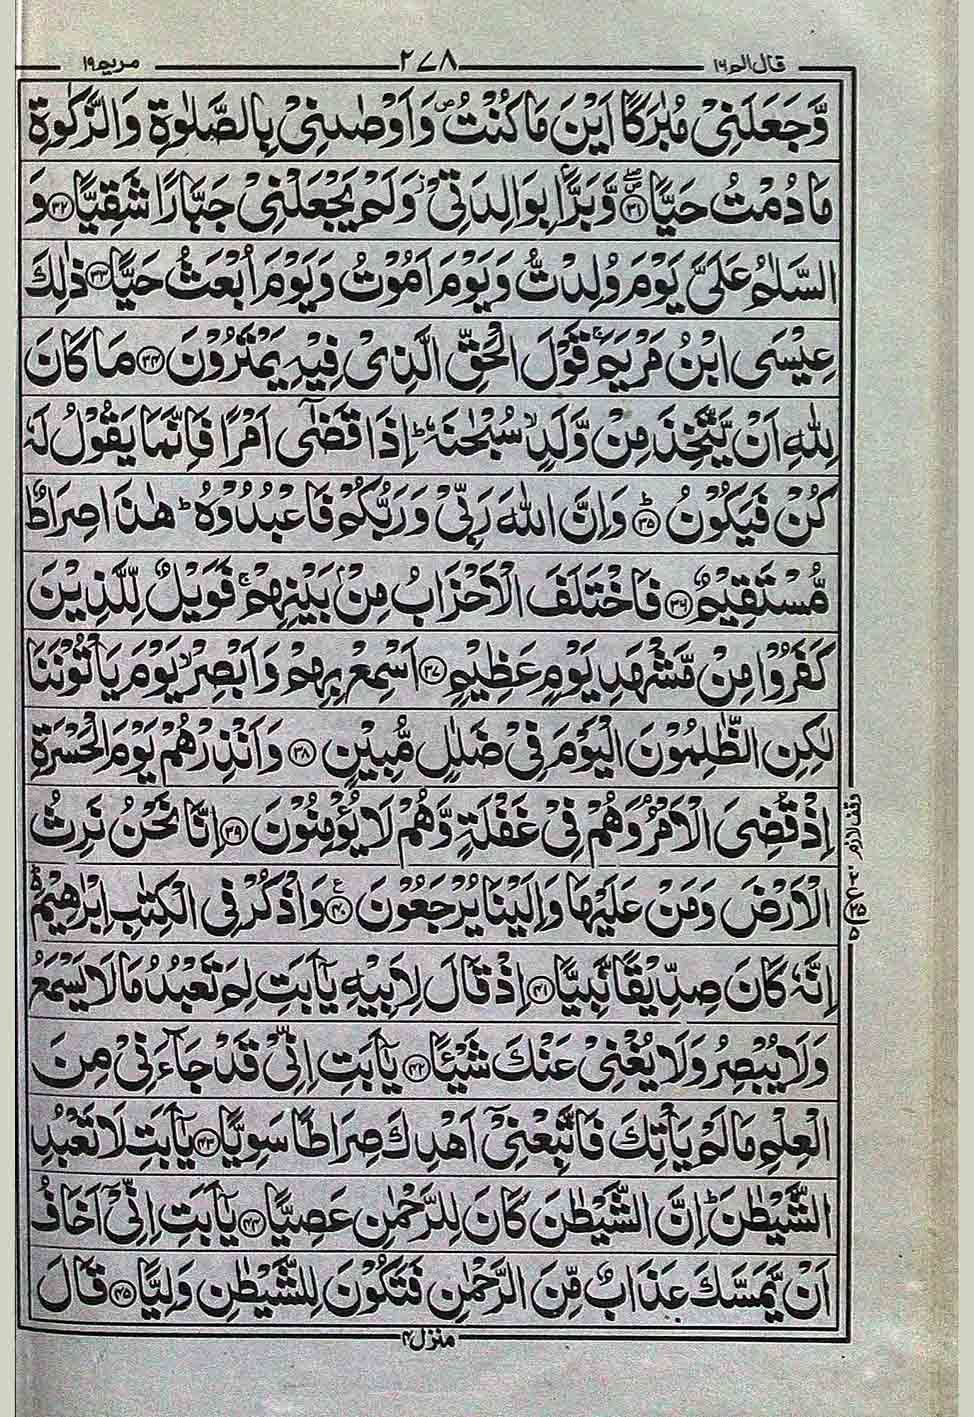 قال الم ١٦ ٢٧٨ مريم ١٩
وَّجَعَلَنِىْ مُبٰرَكًا اَيْنَ مَا كُنْتُ ۖ وَاَوْصٰنِىْ بِالصَّلٰوةِ وَالزَّكٰوةِ
مَا دُمْتُ حَيًّا ۖ‏ ﴿۳۱﴾ وَّبَرًّۢا بِوَالِدَتِىْ وَلَمْ يَجْعَلْنِىْ جَبَّارًا شَقِيًّا ﴿۳۲﴾ وَ
السَّلٰمُ عَلَىَّ يَوْمَ وُلِدْتُّ وَيَوْمَ اَمُوْتُ وَيَوْمَ اُبْعَثُ حَيًّا ﴿۳۳﴾ ذٰلِكَ
عِيْسَى ابْنُ مَرْيَمَ ۚ قَوْلَ الْحَقِّ الَّذِىْ فِيْهِ يَمْتَرُوْنَ ﴿۳۴﴾ مَا كَانَ
لِلّٰهِ اَنْ يَّتَّخِذَ مِنْ وَّلَدٍ ۙ سُبْحٰنَهٗ ؕ اِذَا قَضٰٓى اَمْرًا فَاِنَّمَا يَقُوْلُ لَهٗ
كُنْ فَيَكُوْنُ ؕ ﴿۳۵﴾ وَاِنَّ اللّٰهَ رَبِّىْ وَرَبُّكُمْ فَاعْبُدُوْهُ ؕ هٰذَا صِرَاطٌ
مُّسْتَقِيْمٌ ﴿۳۶﴾ فَاخْتَلَفَ الْاَحْزَابُ مِنْۢ بَيْنِهِمْ ۚ فَوَيْلٌ لِّلَّذِيْنَ
كَفَرُوْا مِنْ مَّشْهَدِ يَوْمٍ عَظِيْمٍ ﴿۳۷﴾ اَسْمِعْ بِهِمْ وَاَبْصِرْ ۙ يَوْمَ يَاْتُوْنَنَا
لٰكِنِ الظّٰلِمُوْنَ الْيَوْمَ فِىْ ضَلٰلٍ مُّبِيْنٍ ﴿۳۸﴾ وَاَنْذِرْهُمْ يَوْمَ الْحَسْرَةِ
اِذْ قُضِىَ الْاَمْرُ ۘ وَهُمْ فِىْ غَفْلَةٍ وَّهُمْ لَا يُؤْمِنُوْنَ ﴿۳۹﴾ اِنَّا نَحْنُ نَرِثُ
وقف لازم
الْاَرْضَ وَمَنْ عَلَيْهَا وَاِلَيْنَا يُرْجَعُوْنَ ﴿۴۰﴾ وَاذْكُرْ فِى الْكِتٰبِ اِبْرٰهِيْمَ ؕ
٢ ع ٢٥ ٥
اِنَّهٗ كَانَ صِدِّيْقًا نَّبِيًّا ﴿۴۱﴾ اِذْ قَالَ لِاَبِيْهِ يٰۤاَبَتِ لِمَ تَعْبُدُ مَا لَا يَسْمَعُ
وَلَا يُبْصِرُ وَلَا يُغْنِىْ عَنْكَ شَيْئًا ﴿۴۲﴾ يٰۤاَبَتِ اِنِّىْ قَدْ جَآءَنِىْ مِنَ
الْعِلْمِ مَا لَمْ يَاْتِكَ فَاتَّبِعْنِىْۤ اَهْدِكَ صِرَاطًا سَوِيًّا ﴿۴۳﴾ يٰۤاَبَتِ لَا تَعْبُدِ
الشَّيْطٰنَ ؕ اِنَّ الشَّيْطٰنَ كَانَ لِلرَّحْمٰنِ عَصِيًّا ﴿۴۴﴾ يٰۤاَبَتِ اِنِّىْۤ اَخَافُ
اَنْ يَّمَسَّكَ عَذَابٌ مِّنَ الرَّحْمٰنِ فَتَكُوْنَ لِلشَّيْطٰنِ وَلِيًّا ﴿۴۵﴾ قَالَ
منزل ۴